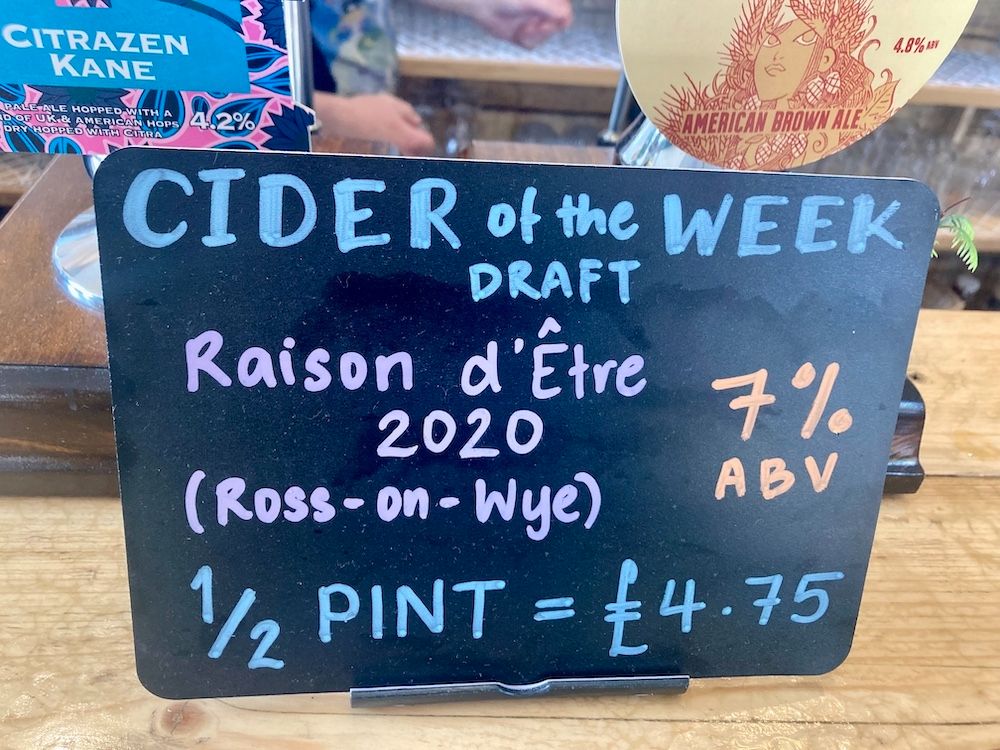 CITRAZEN
KANE
PALE ALE HOPPED WITH A
OF UK & AMERICAN HOPS
DRY HOPPED WITH CITRA
4.2%
4.8% ABV
AMERICAN BROWN ALE
CIDER of the WEEK
DRAFT
Raison d'Être
2020
(Ross-on-Wye)
7%
ABV
1/2 PINT = £4.75